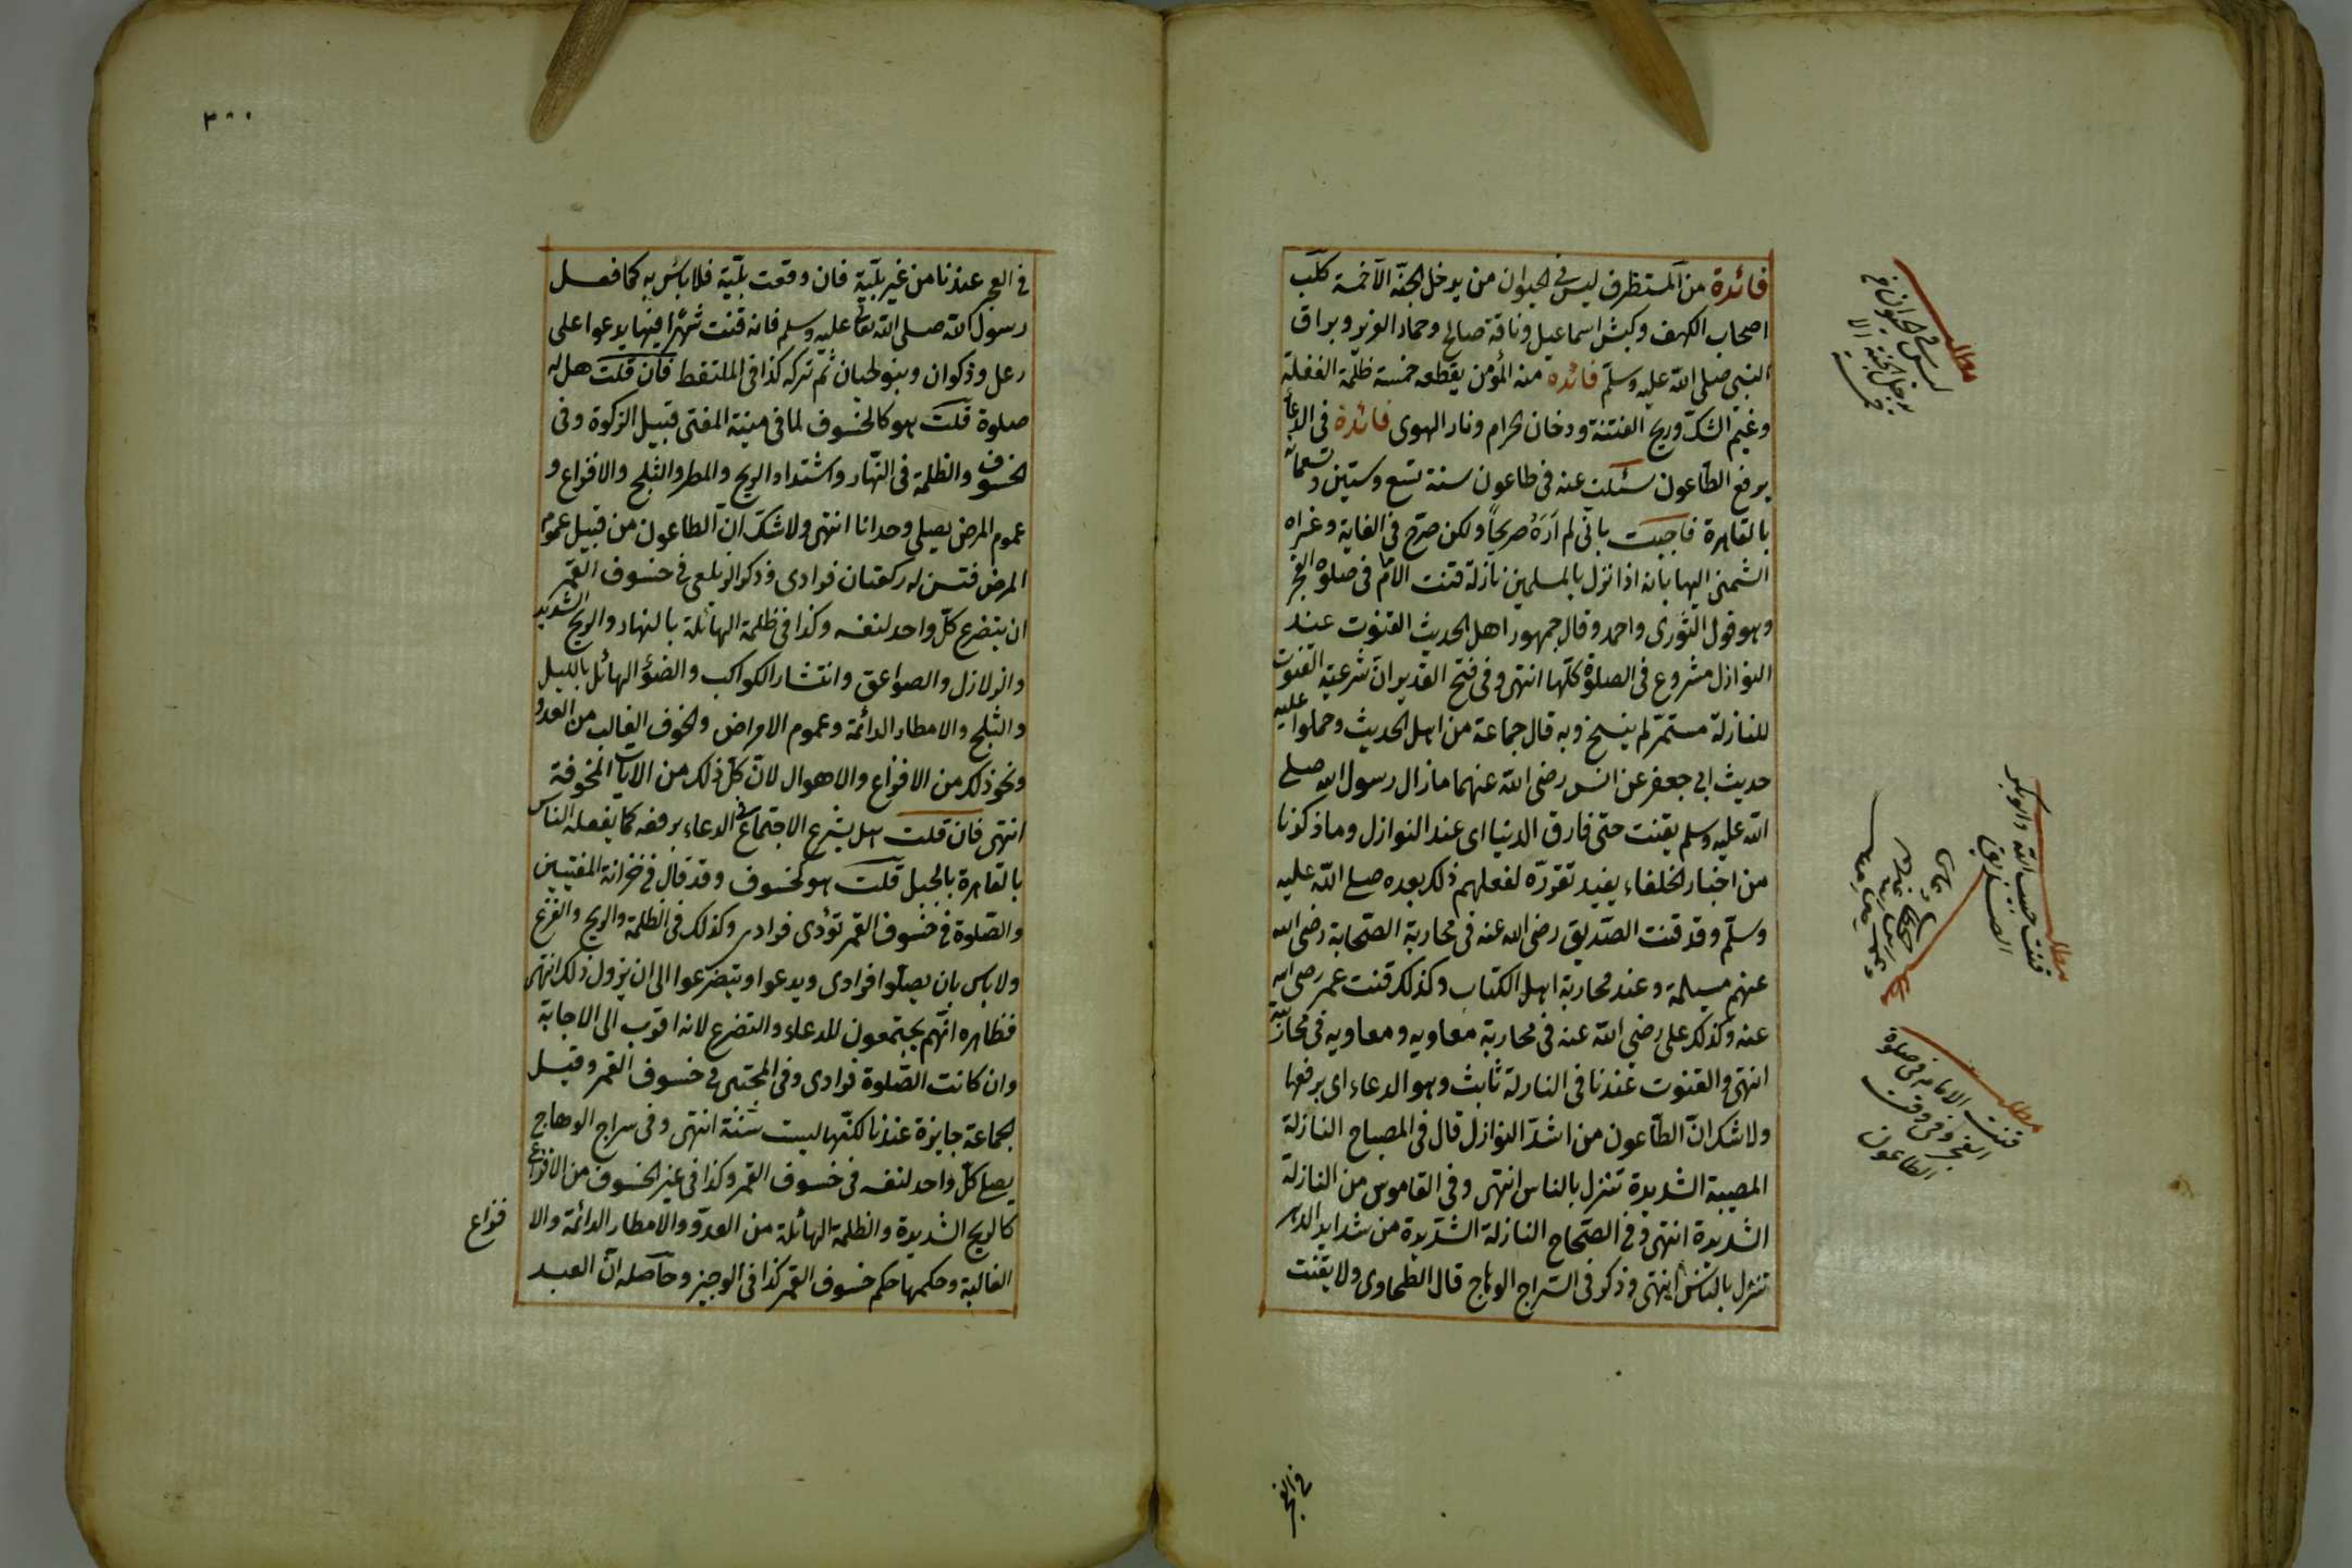 فائدة من المستظرف ليس في الحيوان من يدخل الجنة الا خمسة كلب
اصحاب الكهف وكبش اسماعيل وناقة صالح وحمار العزير وبراق
النبي صلى الله عليه وسلم فائدة منه المؤمن يقطعه خمسة ظلمة الغفلة
وغيم الشك وريح الفتنة ودخان الحرام ونار الهوى فائدة في الدعاء
برفع الطاعون سئلت عنه في طاعون سنة تسع وستين وتسعمائة
بالقاهرة فاجبت باني لم اره صريحا ولكن صرح في الغاية وعزاه
الشمني اليها بانه اذا نزل بالمسلمين نازلة قنت الامام في صلوة الفجر
وهو قول الثورى واحمد وقال جمهور اهل الحديث القنوت عند
النوازل مشروع في الصلوة كلها انتهى وفي فتح القدير ان شرعية القنوت
للنازلة مستمر لم ينسخ وبه قال جماعة من اهل الحديث وحملوا عليه
حديث ابي جعفر عن انس رضى الله عنهما ما زال رسول الله صلى
الله عليه وسلم يقنت حتى فارق الدنيا اى عند النوازل وما ذكرنا
من اخبار الخلفاء يفيد تقرره لفعلهم ذلك بعده صلى الله عليه
وسلم وقد قنت الصديق رضى الله عنه في محاربة الصحابة رضى الله
عنهم مسيلمة وعند محاربة اهل الكتاب وكذلك قنت عمر رضى الله
عنه وكذلك على رضى الله عنه في محاربة معاويه ومعاويه في محاربته
انتهى والقنوت عندنا في النازلة ثابت وهو الدعاء اى برفعها
ولا شك ان الطاعون من اشد النوازل قال في المصباح النازلة
المصيبة الشديدة تنزل بالناس انتهى وفي القاموس من النازلة
الشديدة انتهى وفي الصحاح النازلة الشديدة من شدايد الدهر
تنزل بالناس انتهى وذكر في السراج الوهاج قال الطحاوى ولا يقنت
في الفجر
مطلب ليس في الحيوان من
يدخل الجنة الا
خمسة
مطلب
قنت حبيب الله وابو بكر
الصديق
مطلب
قنت الامام في صلوة
الفجر وفي وقت
الطاعون
٣٠٠
في الفجر عندنا من غير بلية فان وقعت بلية فلا باس به كما فعل
رسول الله صلى الله تعالى عليه وسلم فانه قنت شهرا فيها يدعوا على
رعل وذكوان وبنو لحيان ثم تركه كذا في الملتقط فان قلت هل له
صلوة قلت هو كالخسوف لما في منية المفتى قبيل الزكوة وفى
الخسوف والظلمة في النهار واشتداد الريح والمطر والثلج والافزاع و
عموم المرض يصلى وحدانا انتهى ولا شك ان الطاعون من قبيل عموم
المرض فتسن له ركعتان فرادى وذكر الزيلعى في خسوف القمر
ان يتضرع كل واحد لنفسه وكذا في ظلمة الهائلة بالنهار والريح الشديد
والزلازل والصواعق وانتشار الكواكب والضوء الهائل بالليل
والثلج والامطار الدائمة وعموم الامراض والخوف الغالب من العدو
ونحو ذلك من الافزاع والاهوال لان كل ذلك من الايات المخوفة
انتهى فان قلت هل يشرع الاجتماع في الدعاء برفعه كما يفعله الناس
بالقاهرة بالجبل قلت هو كخسوف وقد قال في خزانة المفتيين
والصلوة في خسوف القمر تؤدى فرادى وكذلك في الظلمة والريح والفزع
ولا باس بان يصلوا فرادى ويدعوا ويتضرعوا الى ان يزول ذلك انتهى
فظاهره انهم يجتمعون للدعاء والتضرع لانه اقرب الى الاجابة
وان كانت الصلوة فرادى وفى المجتبى في خسوف القمر وقيل
الجماعة جايزة عندنا لكنها ليست سنة انتهى وفى سراج الوهاج
يصلى كل واحد لنفسه في خسوف القمر وكذا في غير الخسوف من الافزاع
كالريح الشديدة والظلمة الهائلة من العدو والامطار الدائمة والا
فزاع
الغالبة وحكمها حكم خسوف القمر كذا في الوجيز وحاصله ان العبد